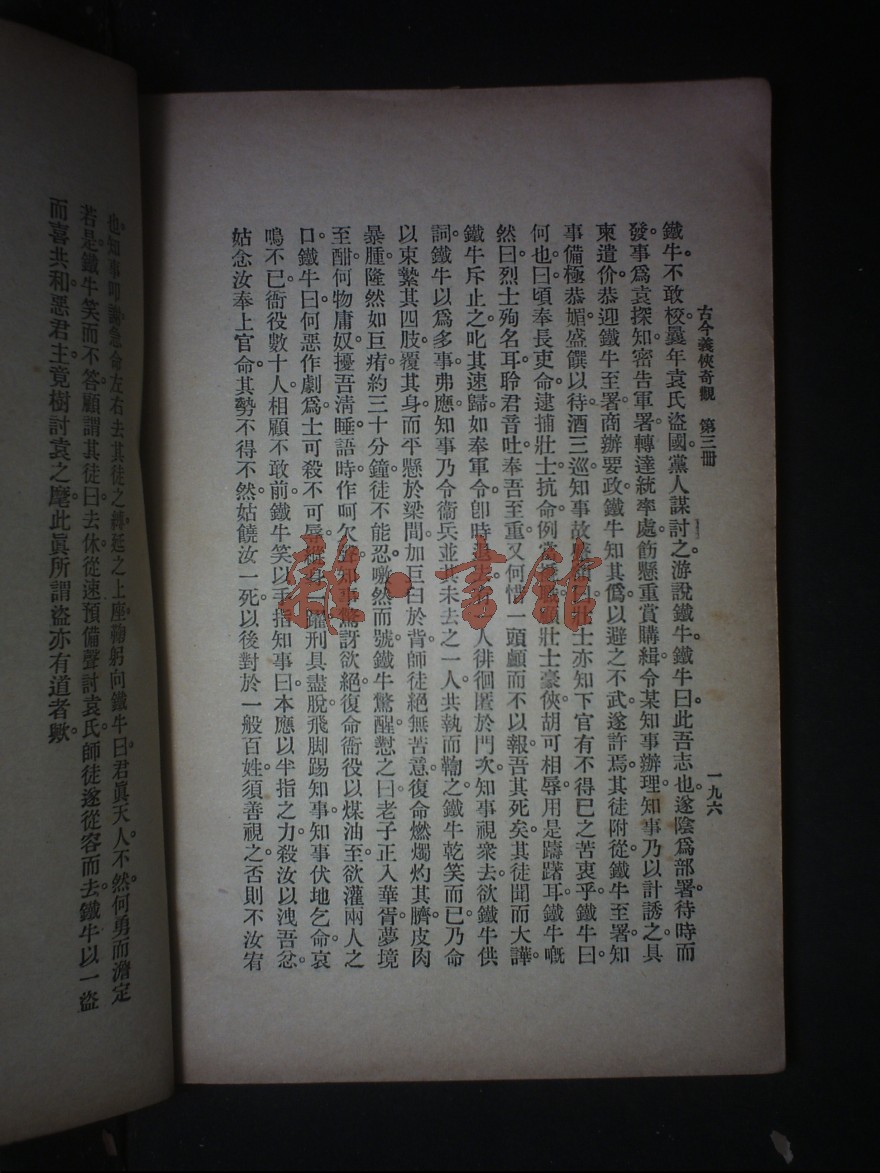 古今義俠奇觀 第三冊
一九六
鐵牛不敢校。曩年袁氏盜國。黨人謀討之。游說鐵牛。鐵牛曰。此吾志也。遂陰爲部署。待時而
發。事爲袁探知。密告軍署。轉達統率處。飭懸重賞購緝。令某知事辦理。知事乃以計誘之。具
柬遣价。恭迎鐵牛至署。商辦要政。鐵牛知其僞。以避之不武。遂許焉。其徒附從鐵牛至署。知
事備極恭媚。盛饌以待。酒三巡。知事故 壯士亦知下官有不得巳之苦衷乎。鐵牛曰。
何也。曰。頃奉長吏命。逮捕壯士。抗命例 壯士豪俠。胡可相辱。用是躊躇耳。鐵牛慨
然曰。烈士殉名耳。聆君音吐。奉吾至重。又何惜一頭顱而不以報。吾其死矣。其徒聞而大譁。
鐵牛斥止之。叱其速歸。如奉軍令。卽時退去。 人徘徊匿於門次。知事視衆去。欲鐵牛供
詞。鐵牛以爲多事。弗應。知事乃令衞兵並其未去之一人。共執而鞫之。鐵牛乾笑而已。乃命
以束縶其四肢。覆其身而平懸於梁間。加巨臼於背。師徒絕無苦意。復命燃燭灼其臍。皮肉
暴腫。隆然如巨疣。約三十分鐘。徒不能忍。噭然而號。鐵牛驚醒。懟之曰。老子正入華胥夢境。
至酣。何物庸奴。擾吾淸睡。語時作呵欠 知事驚訝欲絕。復命衙役以煤油至。欲灌兩人之
口。鐵牛曰。何惡作劇爲。士可殺不可辱。 身一躍。刑具盡脫。飛脚踢知事。知事伏地乞命。哀
鳴不已。衙役數十人。相顧不敢前。鐵牛笑以手指知事曰。本應以半指之力。殺汝以洩吾忿。
姑念汝奉上官命。其勢不得不然。姑饒汝一死。以後對於一般百姓。須善視之。否則不汝宥
也。知事叩 急命左右去其徒之縛。延之上座。鞠躬向鐵牛曰。君眞天人。不然何勇而澹定
若是。鐵牛笑而不答。顧謂其徒曰。去休。從速預備聲討袁氏。師徒遂從容而去。鐵牛以一盜
而喜共和。惡君主。竟樹討袁之麾。此眞所謂盜亦有道者歟。